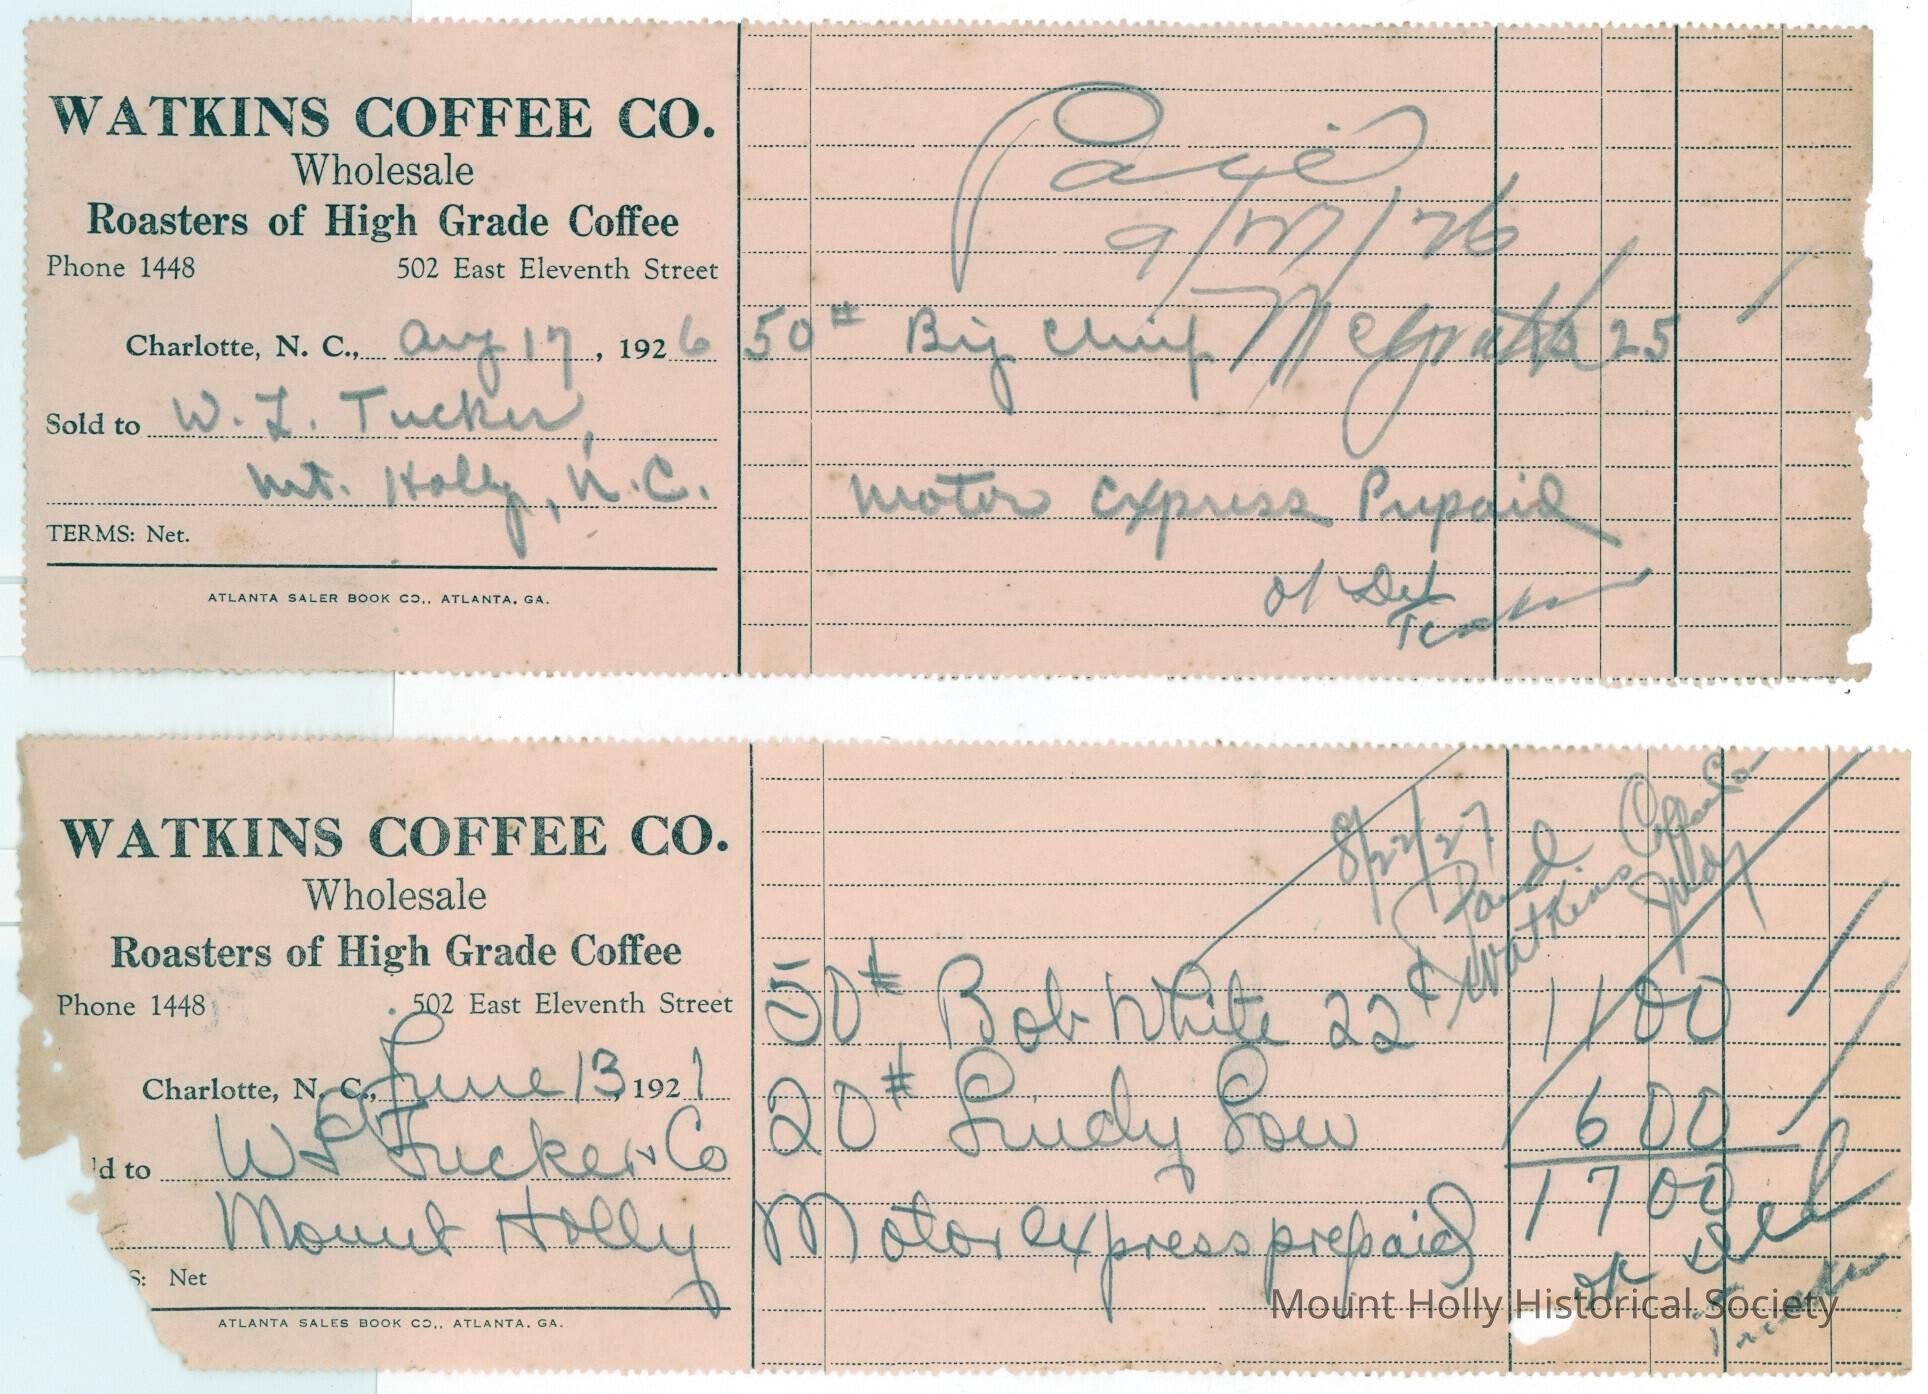 WATKINS COFFEE CO.
Wholesale
Roasters of High Grade Coffee
Phone 1448 502 East Eleventh Street
Charlotte, N. C., Aug 17, 1926
Sold to W. L. Tucker,
Mt. Holly, N.C.
TERMS: Net.
ATLANTA SALER BOOK CO., ATLANTA, GA.
Paid
9/17/26
50# Big Chief 25
Motor Express Prepaid
Del
WATKINS COFFEE CO.
Wholesale
Roasters of High Grade Coffee
Phone 1448 502 East Eleventh Street
Charlotte, N. C., June 13, 1927
d to W L Tucker Co
Mount Holly
S: Net
ATLANTA SALES BOOK CO., ATLANTA, GA.
8/22/27
Paid
Watkins Coffee Co
50# Bob White 22¢ 11 00
20# Lindy Lou 6 00
17 00
Motor express prepaid
ok Del
Mount Holly Historical Society